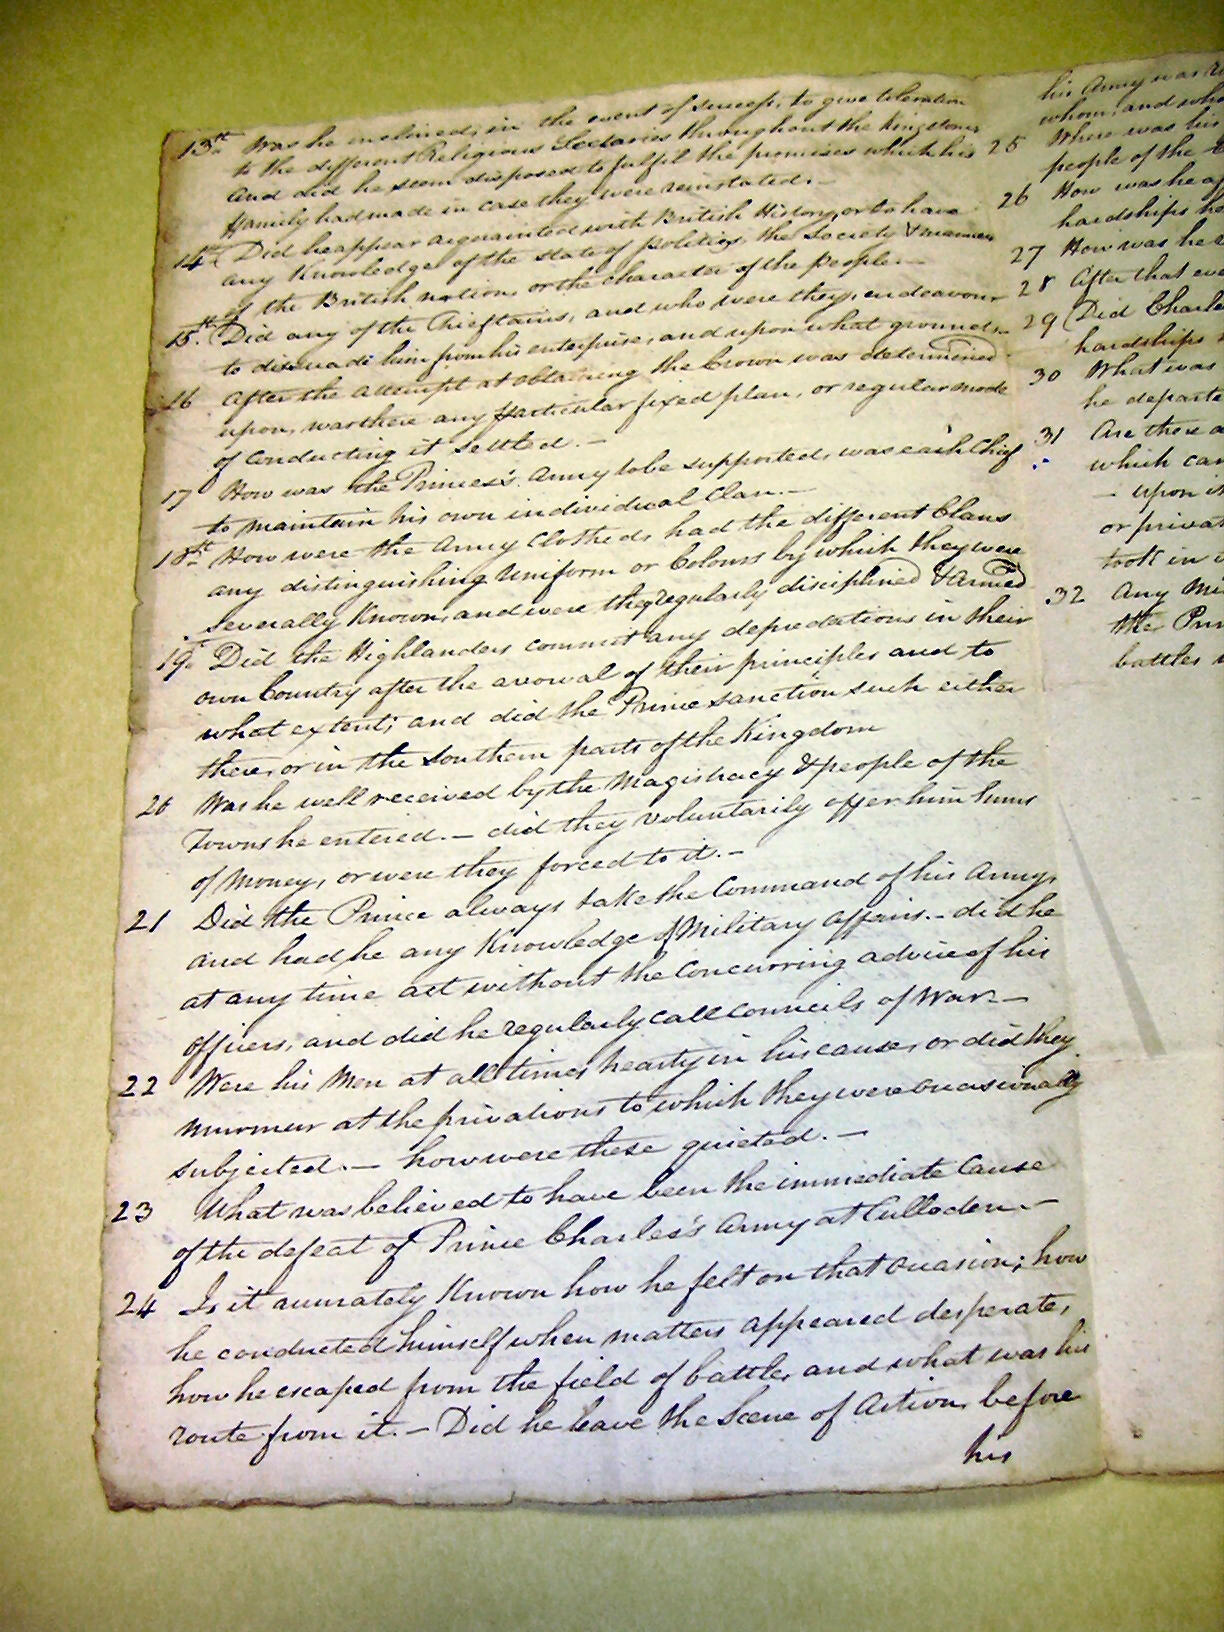 13th Was he inclined, in the event of success, to give toleration
to the different Religious Sectaries throughout the Kingdoms
and did he seem disposed to fulfil the promises which his
family had made in case they were reinstated. —
14th Did he appear acquainted with British History, or to have
any Knowledge of the state of politics, the Society & manners
of the British nation, or the character of the People. —
15th. Did any of the Chieftains, and who were they, endeavour
to disswade him from his enterprise, and upon what grounds. —
16 After the attempt at obtaining the Crown was determined
upon, was there any particular fixed plan, or regular mode
of conducting it settled. —
17 How was the Princes's Army to be supported, was each Chief
to maintain his own individual Clan. —
18th How were the Army Clothed, had the different Clans
any distinguishing Uniform or Colours by which they were
severally Known, and were they regularly disciplined & Armed
19. Did the Highlanders commit any depredations in their
own Country after the avowal of their principles and to
what extent; and did the Prince sanction such either
there, or in the southern parts of the Kingdom
20 Was he well received by the Magistracy & people of the
Towns he entered. — did they voluntarily offer him Sums
of Money, or were they forced to it. —
21 Did the Prince always take the Command of his Army,
and had he any Knowledge of Military Affairs. — did he
at any time act without the Concurring advice of his
officers, and did he regularly call Councils of War. —
22 Were his Men at all times hearty in his cause, or did they
murmur at the privations to which they were occasionally
subjected. — how were these quieted. —
23 What was believed to have been the immediate Cause
of the defeat of Prince Charles's Army at Culloden. —
24 Is it accurately Known how he felt on that occasion; how
he conducted himself when matters appeared desperate,
how he escaped from the field of battle, and what was his
route from it. — Did he leave the Scene of Action, before
his
his Army was
whom, and who
25 Where was his
people of the
26 How was he
hardships he
27 How was he
28 After that
29 Did Charles
hardships
30 What was
he departe
31 Are there a
which can
— upon
or privat
took in
32 Any
the
battles